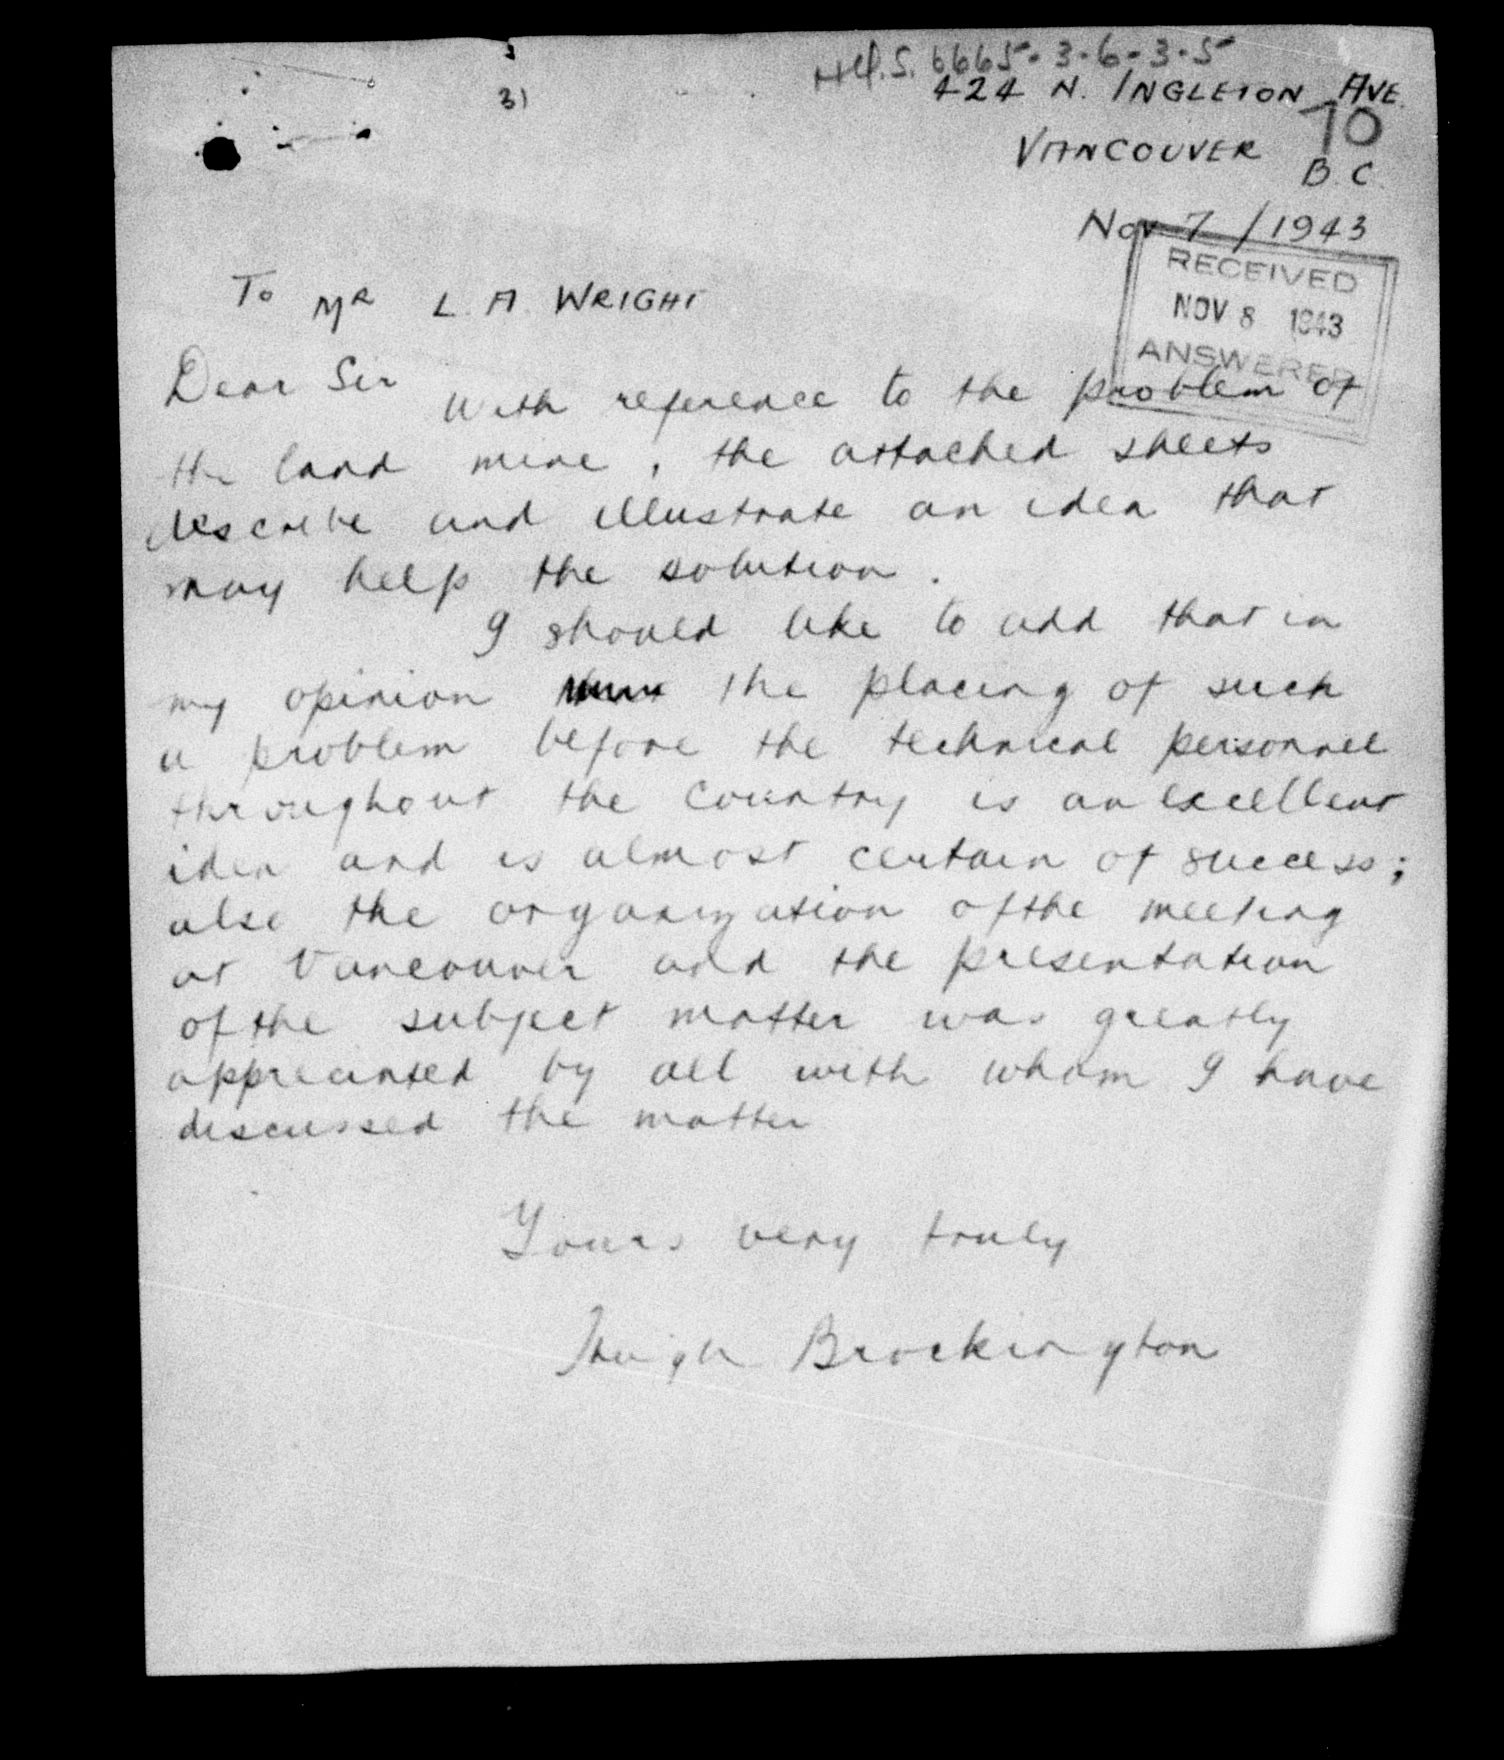 H.Q.S. 6665-3-6-3-5
31
424 N. INGLETON AVE.
70
VANCOUVER
B.C.
Nov 7 / 1943
RECEIVED
NOV 8 1943
ANSWERED
To MR L. A. WRIGHT
Dear Sir
With reference to the problem of
the land mine, the attached sheets
describe and illustrate an idea that
may help the solution.
I should like to add that in
my opinion the placing of such
a problem before the technical personnel
throughout the country is an excellent
idea and is almost certain of success;
also the organization of the meeting
at Vancouver and the presentation
of the subject matter was greatly
appreciated by all with whom I have
discussed the matter
Yours very truly
Hugh Brockington